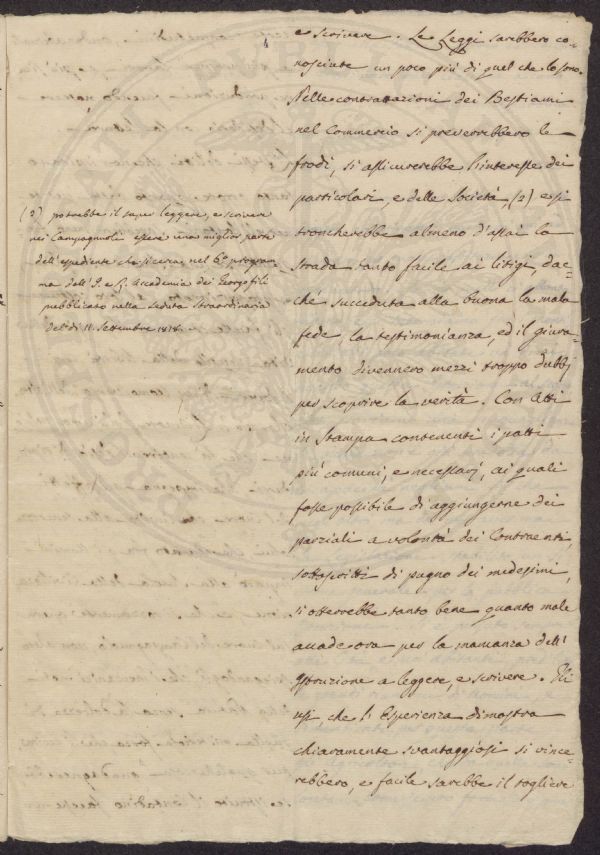 e scrivere. Le Leggi sarebbero co=
nosciute un poco più di quel che lo sono.
Nelle contrattazioni dei Bestiami
nel Commercio si preverrebbero le
frodi, si assicurerebbe l'interesse dei
particolari, e delle Società, (2) e si
troncherebbe almeno d'assai la
strada tanto facile ai litigi, dac=
ché succeduta alla buona la mala
fede, la testimonianza, ed il giura=
mento divennero mezzi troppo dubbj
per scoprire la verità. Con Atti
in Stampa contenenti i patti
più comuni, e necessarj, ai quali
fosse possibile di aggiungerne dei
parziali a volontà dei Contraenti,
sottoscritti di pugno dei medesimi,
si otterrebbe tanto bene quanto male
accade ora per la mancanza dell'
Istruzione a leggere, e scrivere. Gli
usi, che l'Esperienza dimostra
chiaramente svantaggiosi si vince=
rebbero, e facile sarebbe il togliere
(2) potrebbe il saper leggere, e scrivere
nei Campagnoli essere una miglior parte
dell'espediente che si cerca nel 6º program
ma dell'I. e R. Accademia dei Georgofili
pubblicato nella Seduta Straordinaria
del dì 11. Settembre 1818.